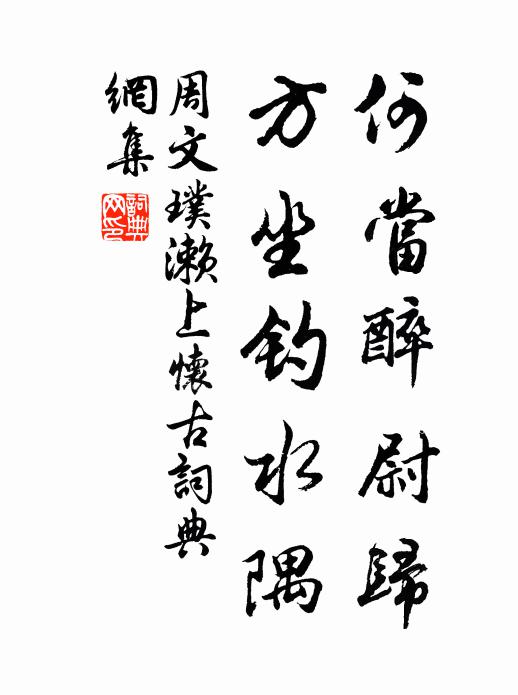 何當醉尉歸
方坐釣水隅
周文璞瀨上懷古詞典
網集
詞典
网印